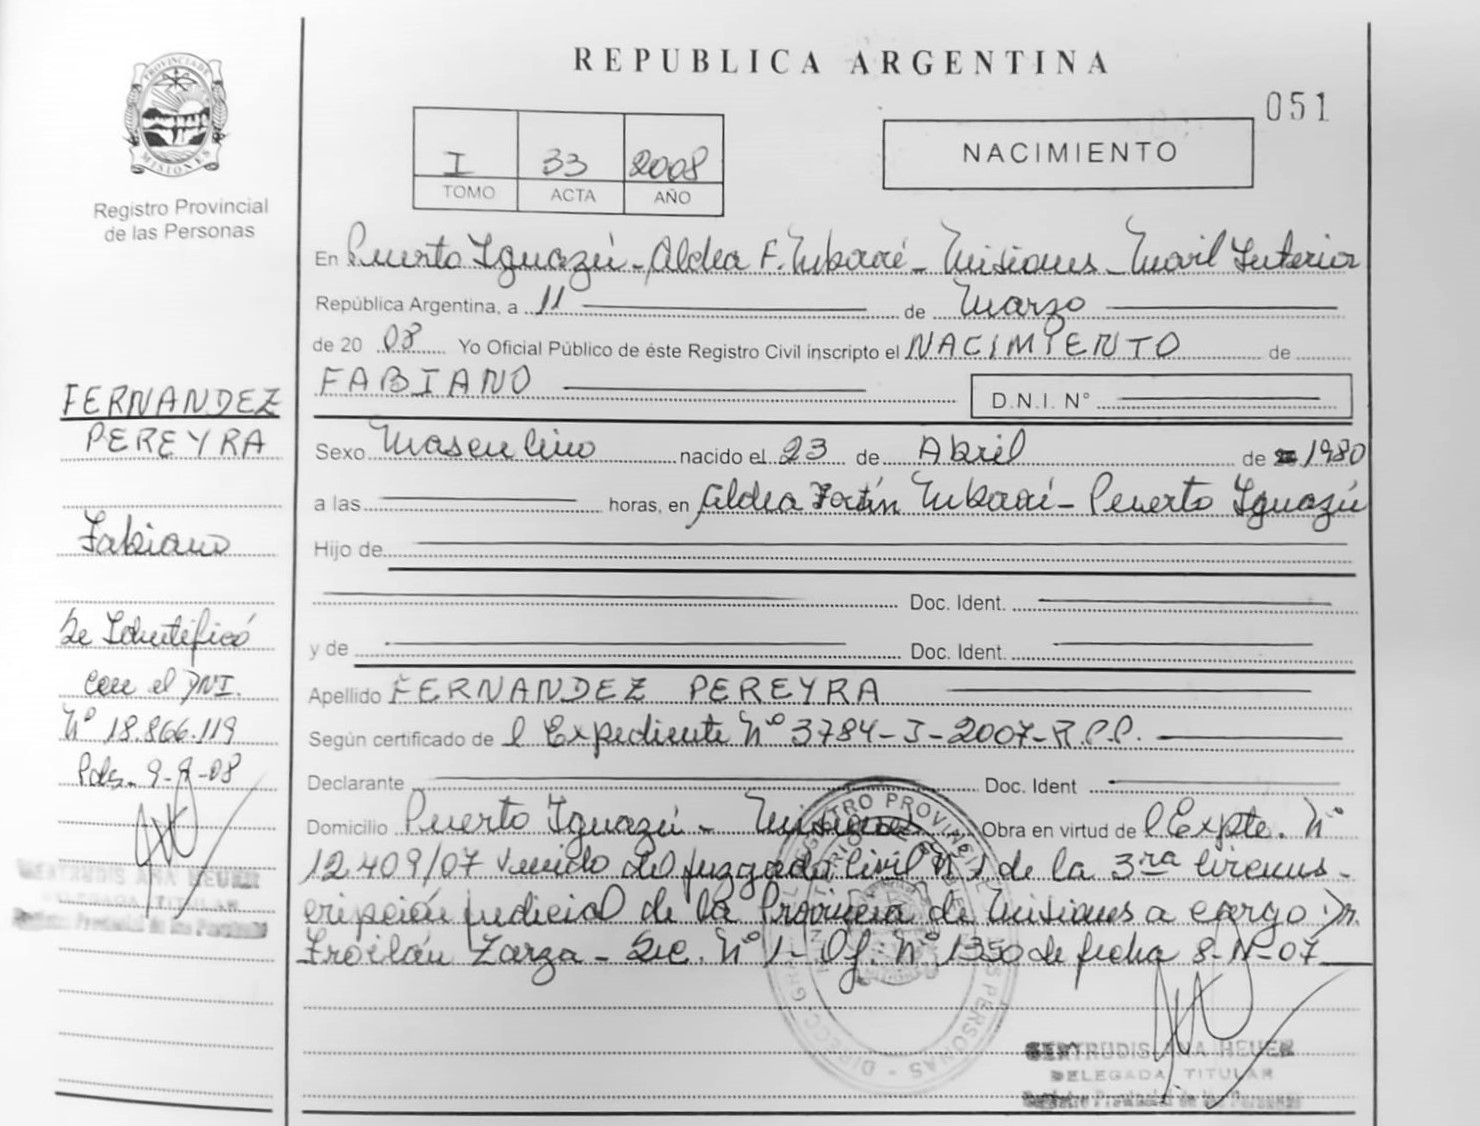 PROVINCIA DE
MISIONES
Registro Provincial
de las Personas
FERNANDEZ
PEREYRA
Fabiano
Se Identificó
con el DNI.
Nº 18.866.119
Pdas. 9-9-08
GERTRUDIS ANA HEUER
DELEGADA TITULAR
Registro Provincial de las Personas
REPUBLICA ARGENTINA
051
I 33 2008
TOMO ACTA AÑO
NACIMIENTO
En Puerto Iguazú - Aldea F. Mbororé - Misiones - Movil Interior
República Argentina, a 11 de Marzo
de 20 08 Yo Oficial Público de éste Registro Civil inscripto el NACIMIENTO de
FABIANO
D.N.I. Nº
Sexo Masculino nacido el 23 de Abril de 1980
a las horas, en Aldea Fortín Mbororé - Puerto Iguazú
Hijo de
Doc. Ident.
y de Doc. Ident.
Apellido FERNANDEZ PEREYRA
Según certificado de l Expediente Nº 3784-I-2007-R.P.P.
Declarante Doc. Ident
Domicilio Puerto Iguazú - Misiones Obra en virtud de l Expte. Nº
12.409/07 venido del juzgado Civil Nº 1 de la 3ra Circuns-
cripción judicial de la Provincia de Misiones a cargo Dr.
Froilán Zarza - Sec. Nº 1 - Of. Nº 1350 de fecha 8-11-07
GERTRUDIS ANA HEUER
DELEGADA TITULAR
Registro Provincial de las Personas